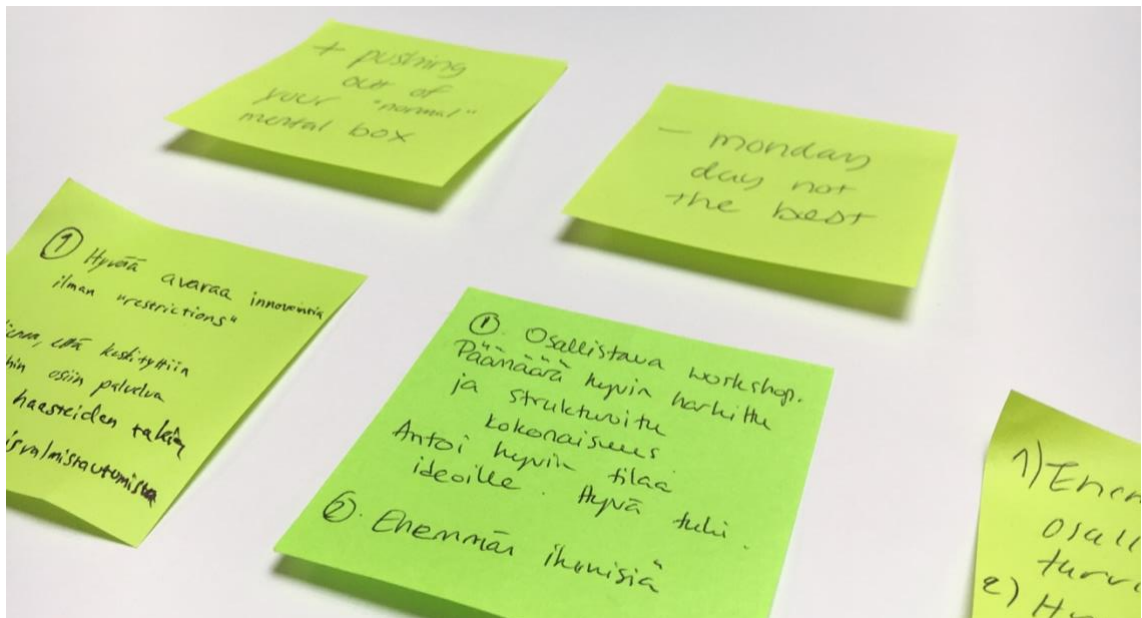 + pushing
out of
your "normal"
mental box
- monday
day not
the best
① Hyvää avaraa innovointia
ilman "restrictions"
että keskityttiin
osiin palvelua
haasteiden takia
①. Osallistava workshop.
Päämäärä hyvin harkittu
ja strukturoitu
kokonaisuus.
Antoi hyvin tilaa
ideoille. Hyvä tuki.
②. Enemmän ihmisiä
1)
2)